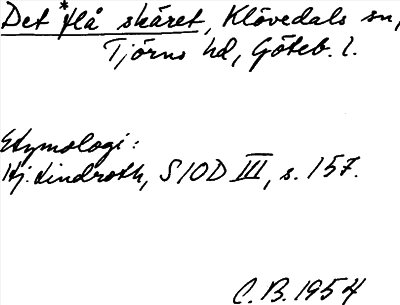 Det *flå skäret, Klövedals sn,
Tjörns hd, Göteb. l.
Etymologi:
Hj. Lindroth, SIOD III, s. 157.
C. B. 1954